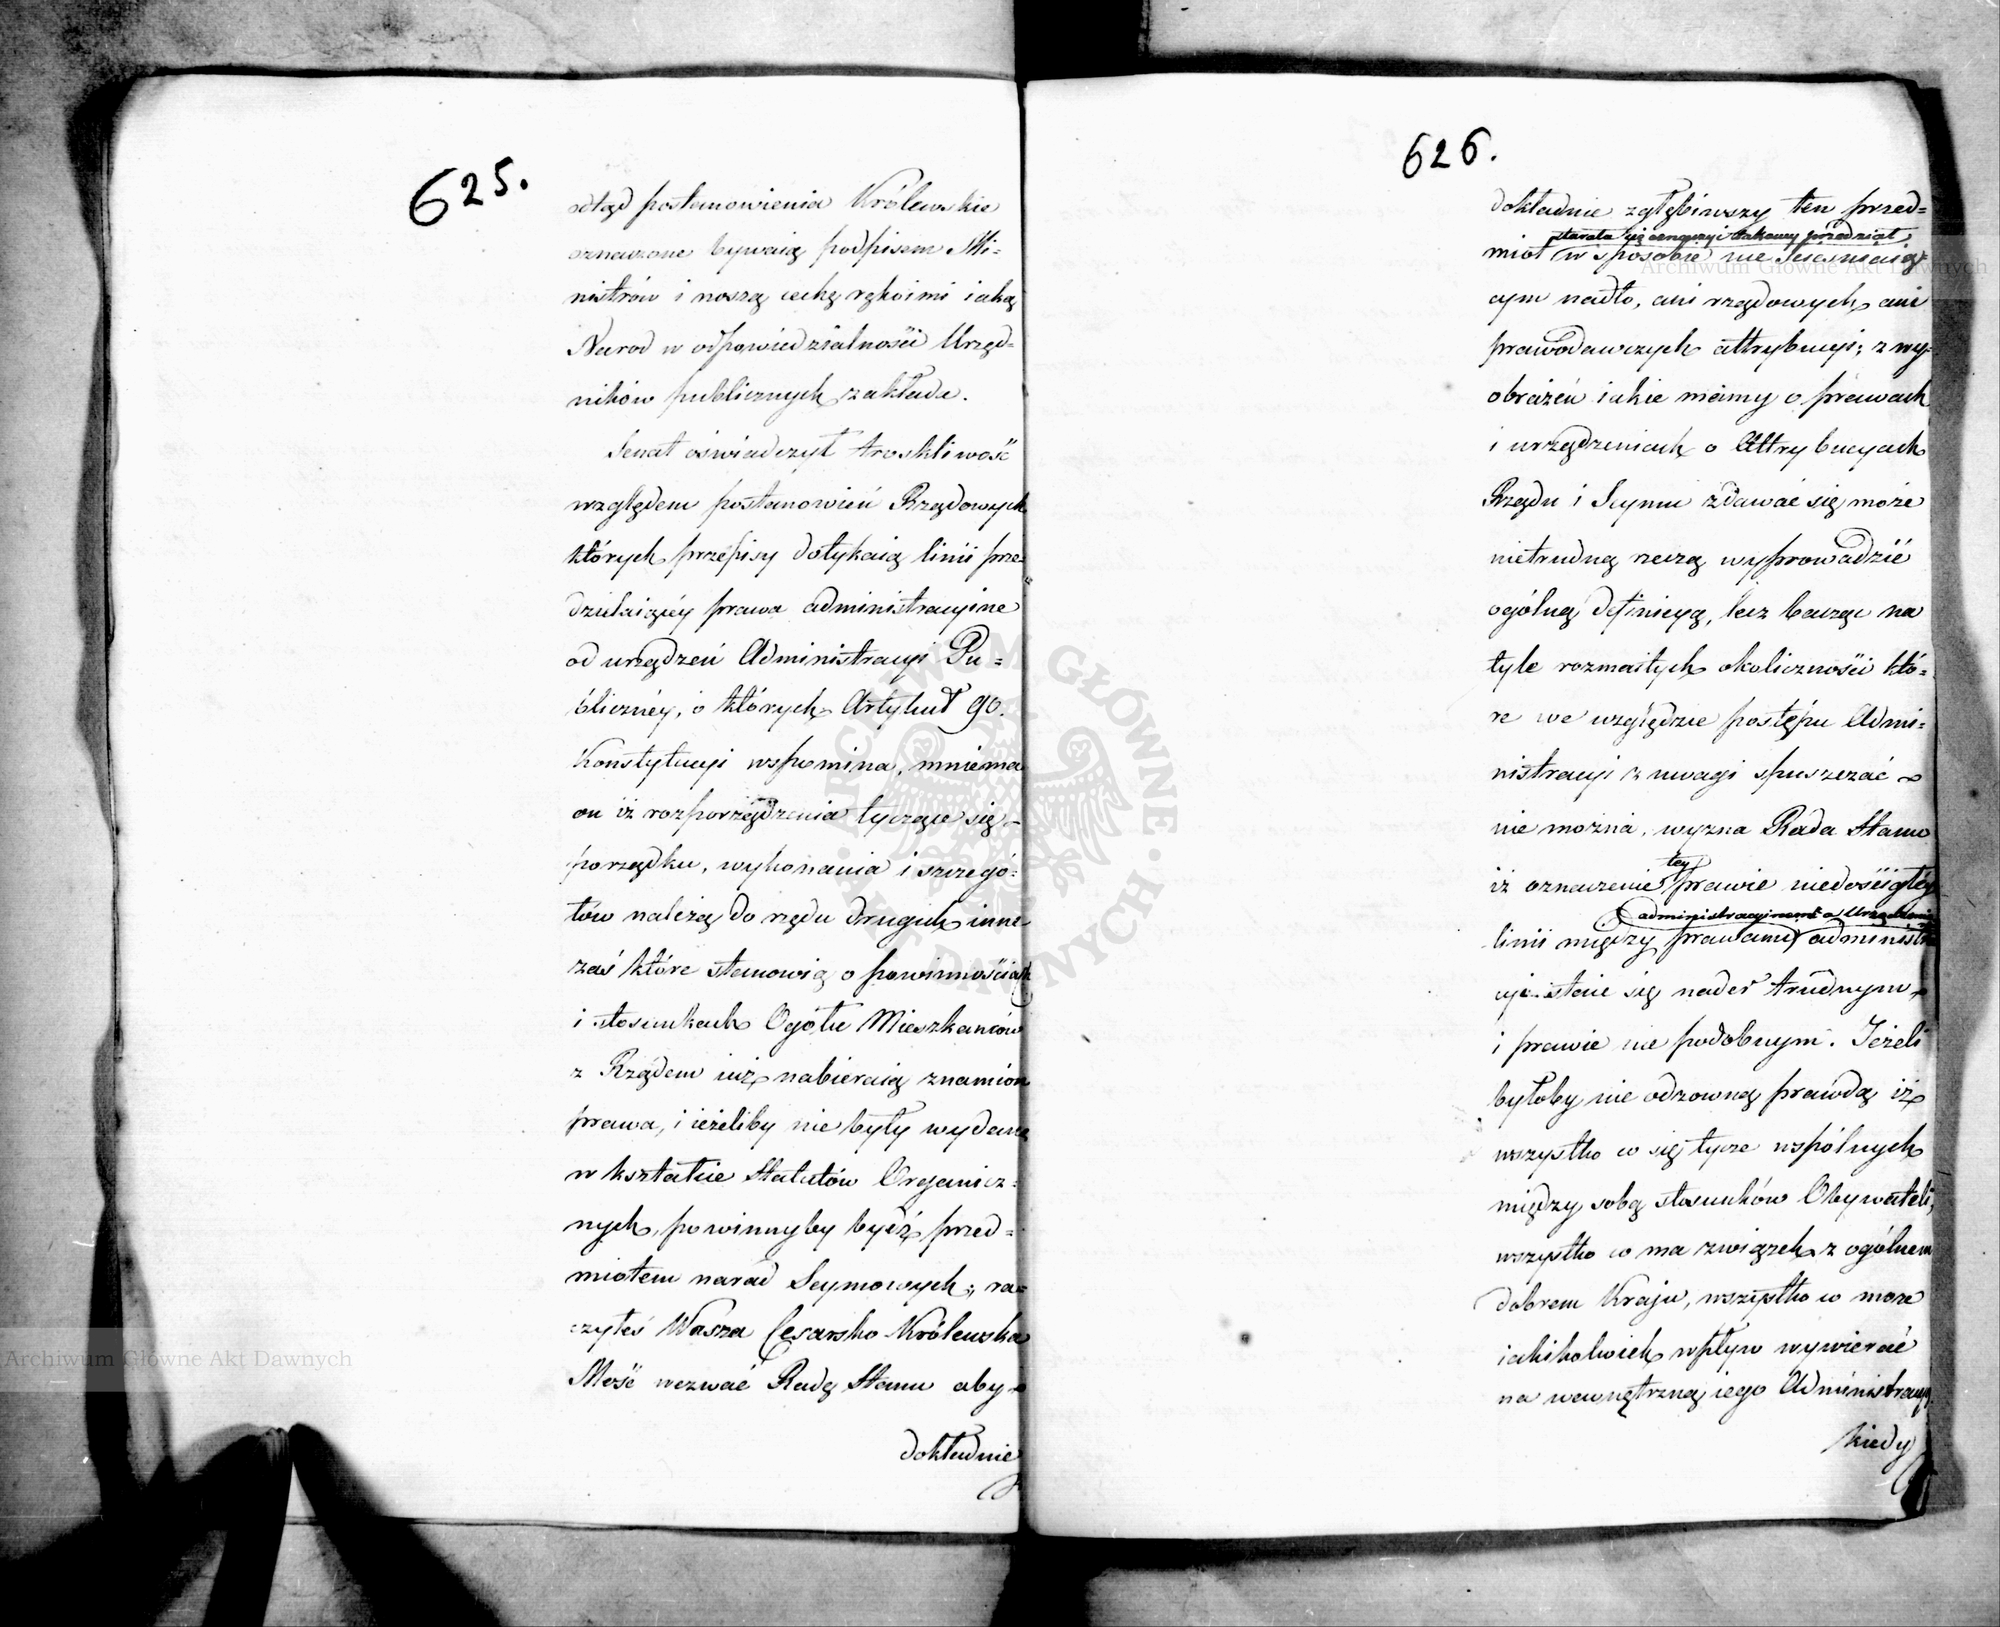 625.
odtąd postanowienia Królewskie
oznaczone bywaią podpisem Mi=
nistrów i noszą cechę rękoimi iaką
Narod w odpowiedzialności Urzęd=
ników publicznych zakłada.
Senat oświadczył troskliwość
względem postanowień Rządowych
których przepisy dotykaią linii prze=
dzielaiącéy prawa administracyine
od urządzeń Administracyi Pu=
bliczney, o których Artykuł 90.
Konstytucyi wspomina, mniema
on iż rozporządzenia tyczące się
porządku, wykonania i szczegó=
łów należą do rzędu drugich inne
zaś które stanowią o powinnościach
i stosunkach Ogółu Mieszkańców
z Rządem iuż nabieraią znamion
prawa, i ieżeliby nie były wydane
w kształcie Statutów Organicz=
nych, powinnyby bydź przed=
miotem narad Seymowych; ra=
czyłeś Wasza Cesarsko Królewska
Mość wezwać Radę Stanu aby
dokładnie
626.
dokładnie zgłębiwszy ten przed=
starała się oznaczyć takowy przedział
miot w sposobie nie ścieśniaią=
cym nadto, ani rządowych ani
prawodawczych attrybucyi; z wy=
obrażeń iakie mamy o prawach
i urządzeniach o Attrybucyach
Rządu i Seymu zdawać się może
nietrudną rzeczą wyprowadzić
ogólną definicyą, lecz bacząc na
tyle rozmaitych okoliczności któ=
re we względzie postępu Admi=
nistracyi z uwagi spuszczać
nie można, wyzna Rada Stanu
tey
iż oznaczenie prawie niedościgłéy
administracyinemi a Urządzenia
linii między prawami administra
cyi staie się nader trudnym
i prawie nie podobnym. Jeżeli
byłoby nie odzowną prawdą iż
wszystko co się tycze wspólnych
między sobą stosunków Obywateli,
wszystko co ma związek z ogólnem
dobrem Kraju, wszystko co może
iakikolwiek wpływ wywierać
na wewnętrzną iego Administracyą
kiedy
Archiwum Główne Akt Dawnych
Archiwum Główne Akt Dawnych
ARCHIWUM GŁÓWNE AKT DAWNYCH